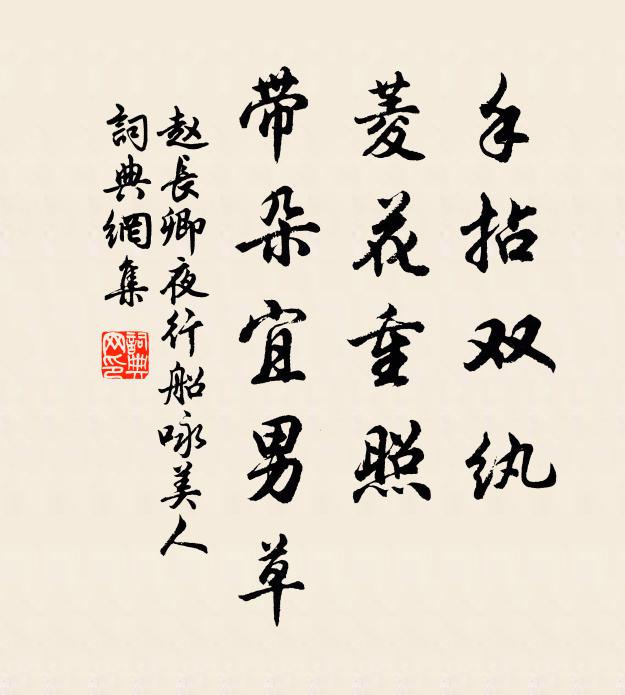 手拈双纨
菱花重照
带朵宜男草
赵長卿夜行船咏美人
詞典網集
詞典网印